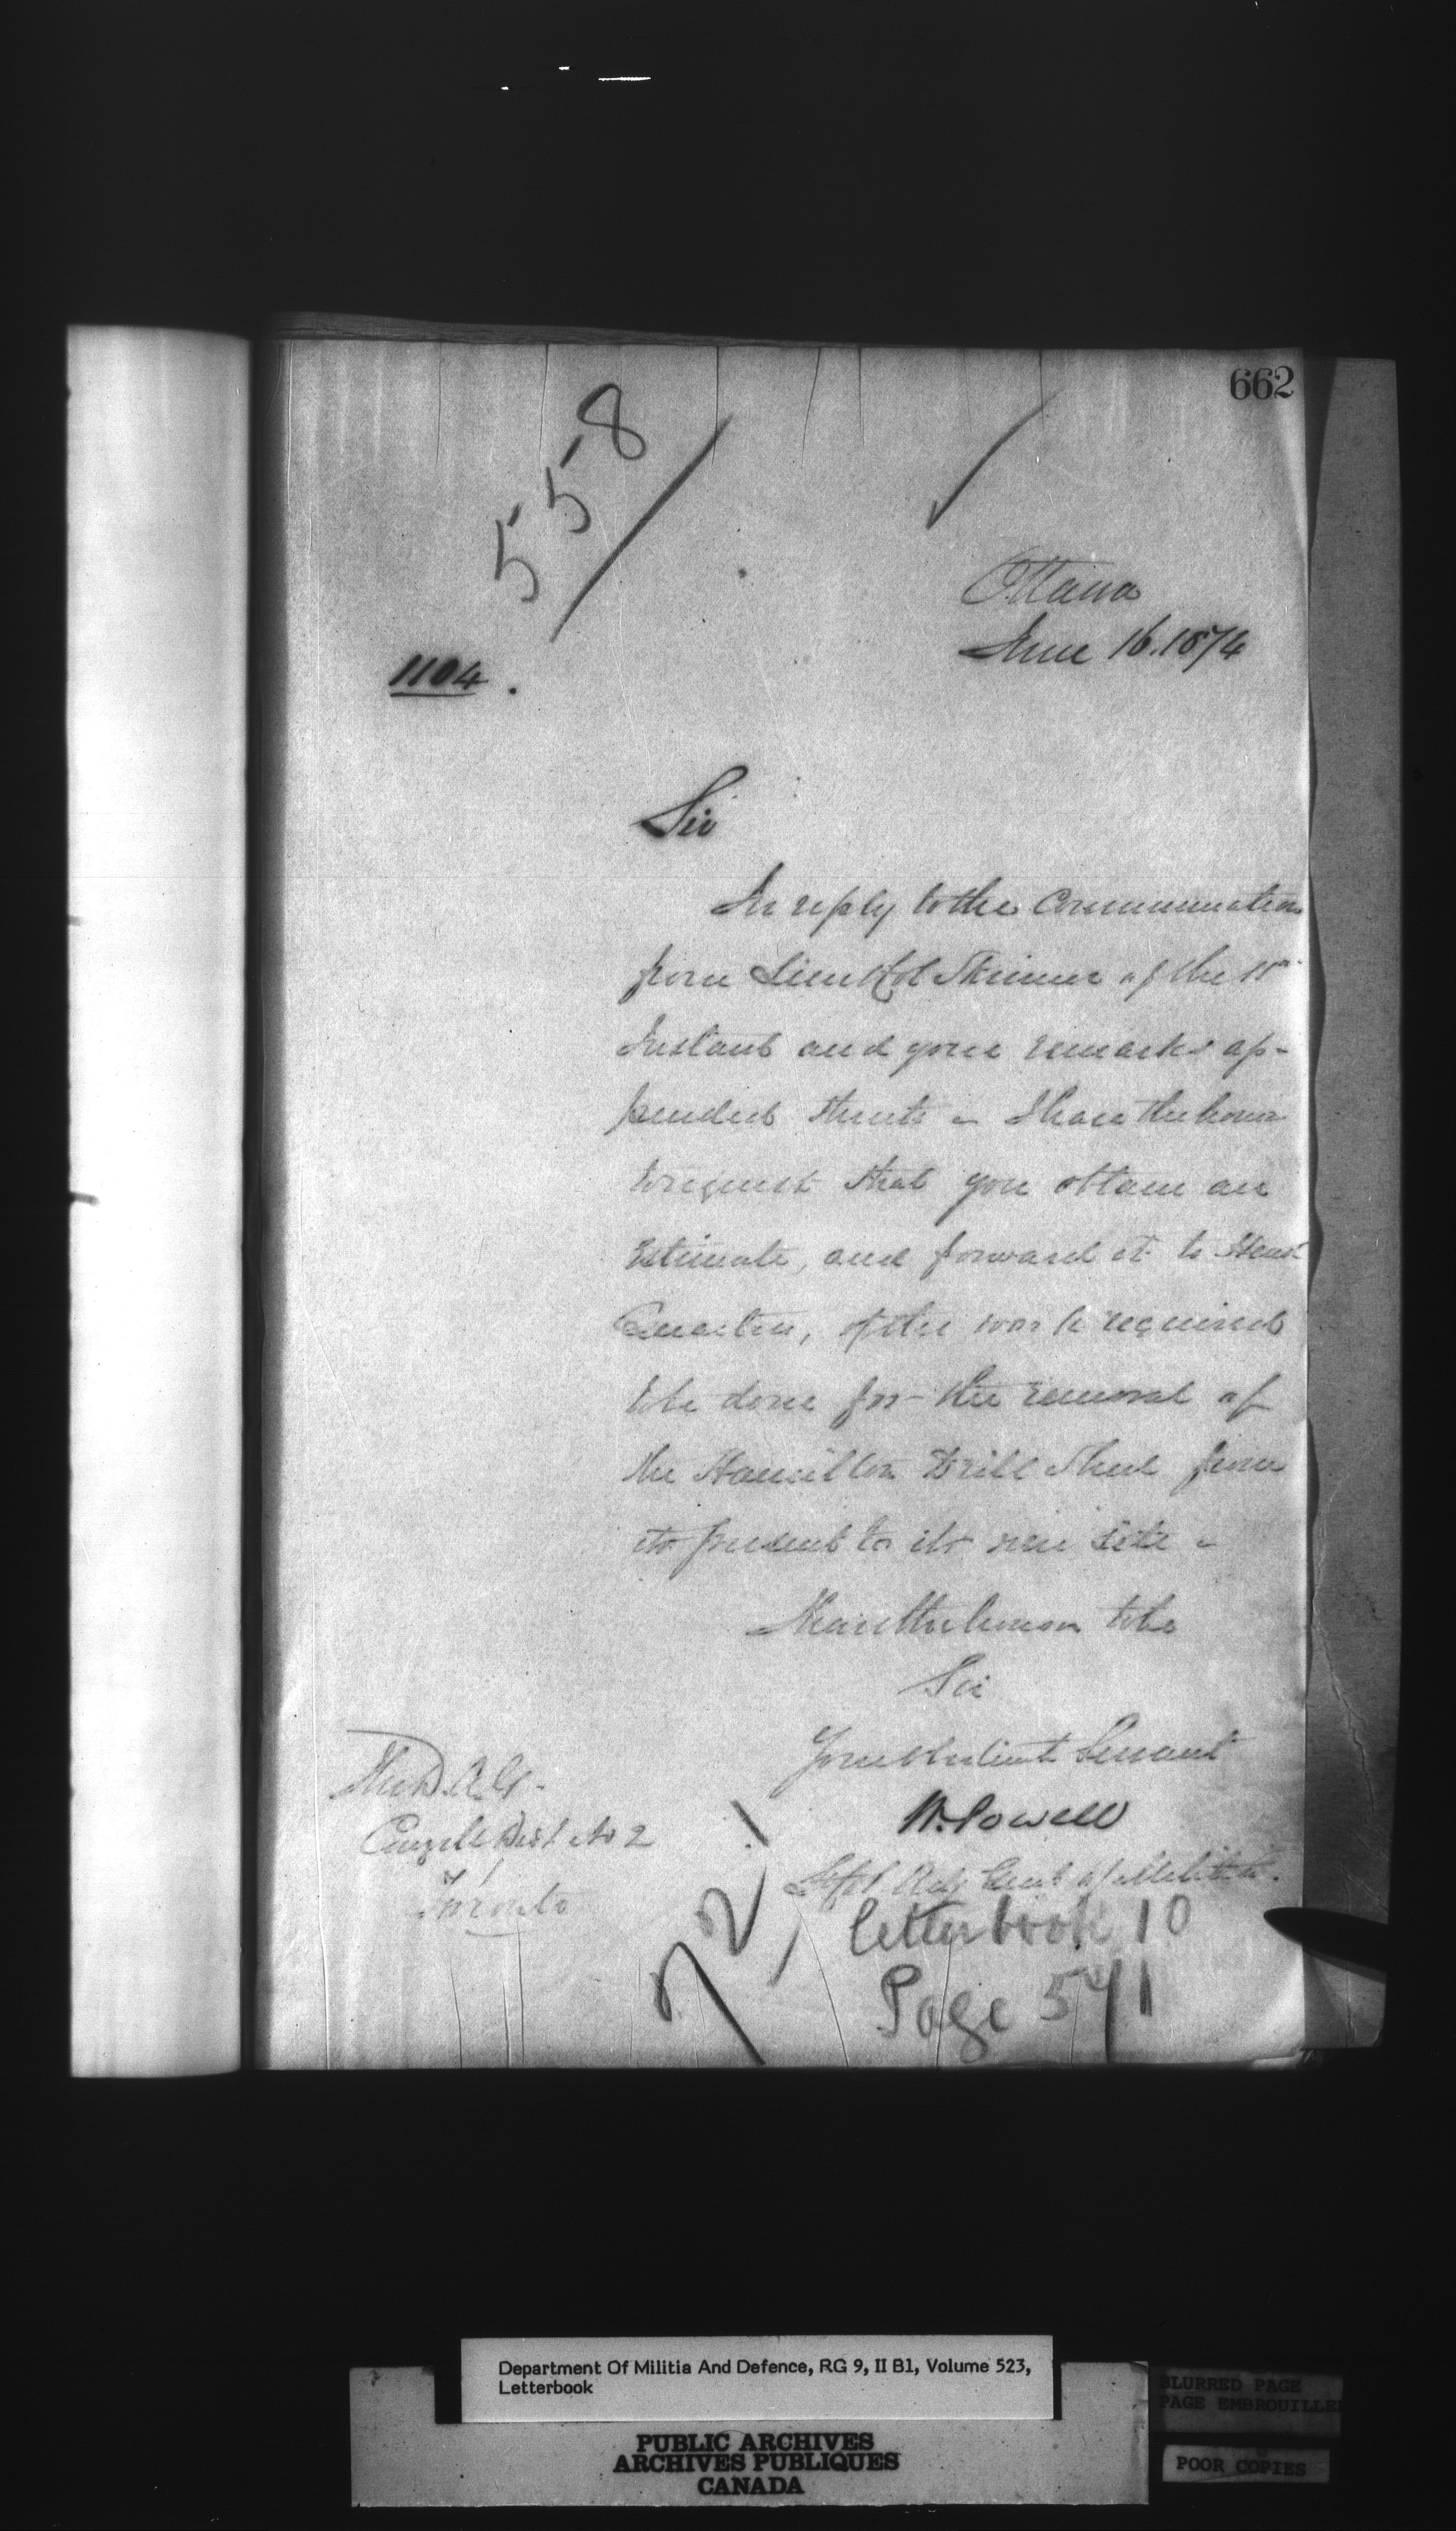 662
558
Ottawa
June 16. 1874
1104.
Sir
In reply to the Communication
from Lieut Col Skinner of the 11th
Instant and your remarks ap-
pended thereto - I have the honor
to request that you obtain an
Estimate, and forward it to Head
Quarters, of the work required
to be done for the removal of
the Hamilton Drill Shed from
its present to its new site -
I have the honor to be
Sir
Your obedient Servant
W. Powell
The D. A. G.
Comg Mil Dist No 2
Toronto
Adj Genl of Militia.
72
letterbook 10
Page 571
Department Of Militia And Defence, RG 9, II B1, Volume 523,
Letterbook
PUBLIC ARCHIVES
ARCHIVES PUBLIQUES
CANADA
BLURRED PAGE
PAGE EMBROUILLEE
POOR COPIES